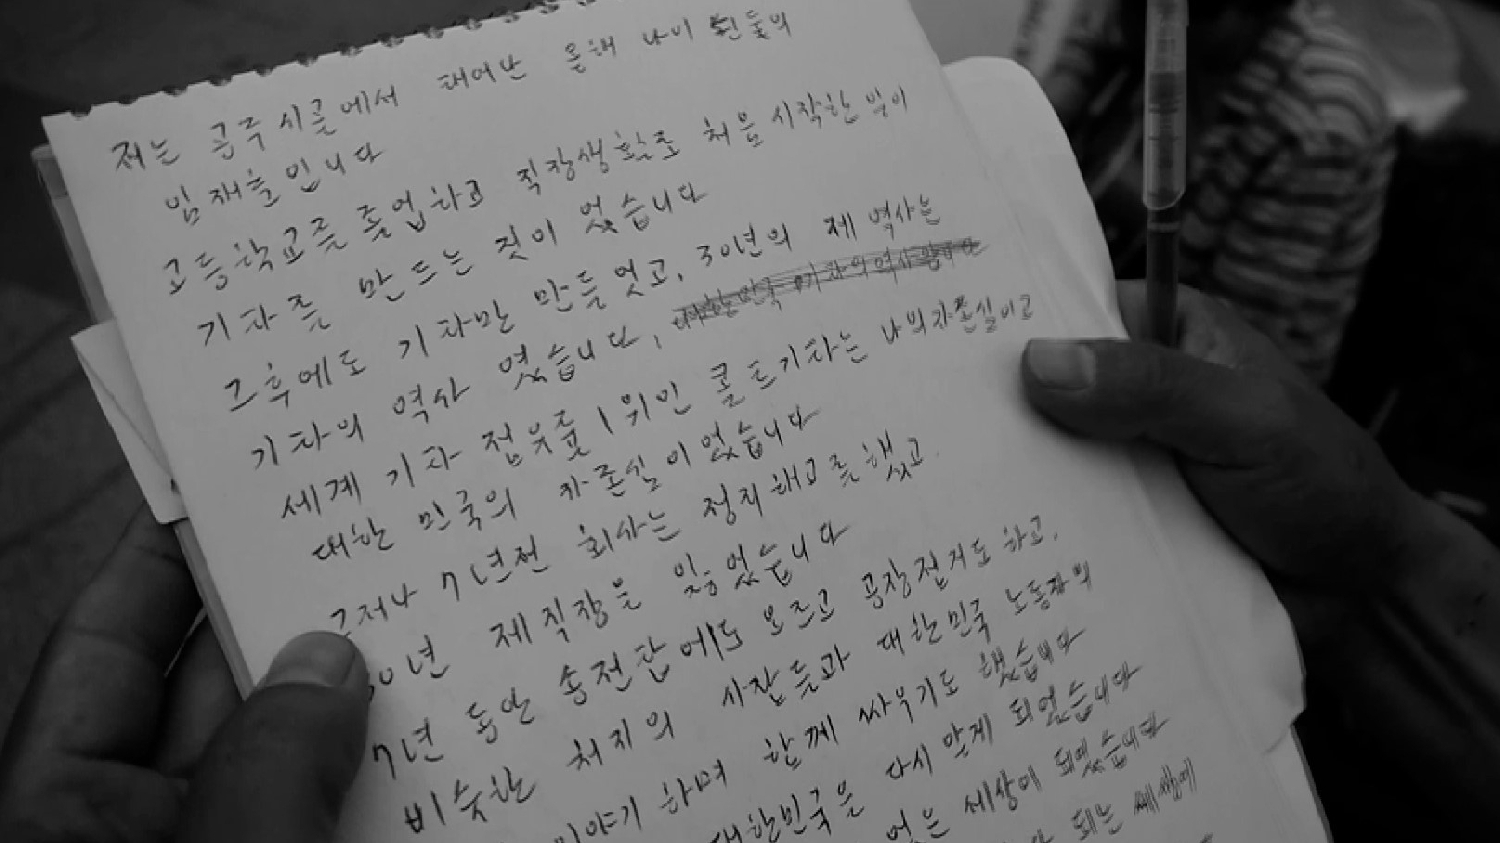 저는 공주 시골에서 태어난 올해 나이 쉰둘의
임재춘입니다
고등학교를 졸업하고 직장생활중 처음 시작한 일이
기타를 만드는 것이 었습니다
그 후에도 기타만 만들 엇고, 30년의 제 역사는
기타의 역사 였습니다,
세계 기타 점유률 1위인 콜트기타는 나의자존심이고
대한 민국의 자존심 이었습니다
그러나 7년전 회사는 정리해고를 했고
30년 제 직장을 잃었습니다
7년 동안 송전탑에도 오르고 공장점거도 하고,
비슷한 처지의 사람들과 대한민국 노동자의
이야기 하며 함께 싸우기도 했습니다
대한민국을 다시 알게 되었습니다
없는 세상이 되었습니다
되는